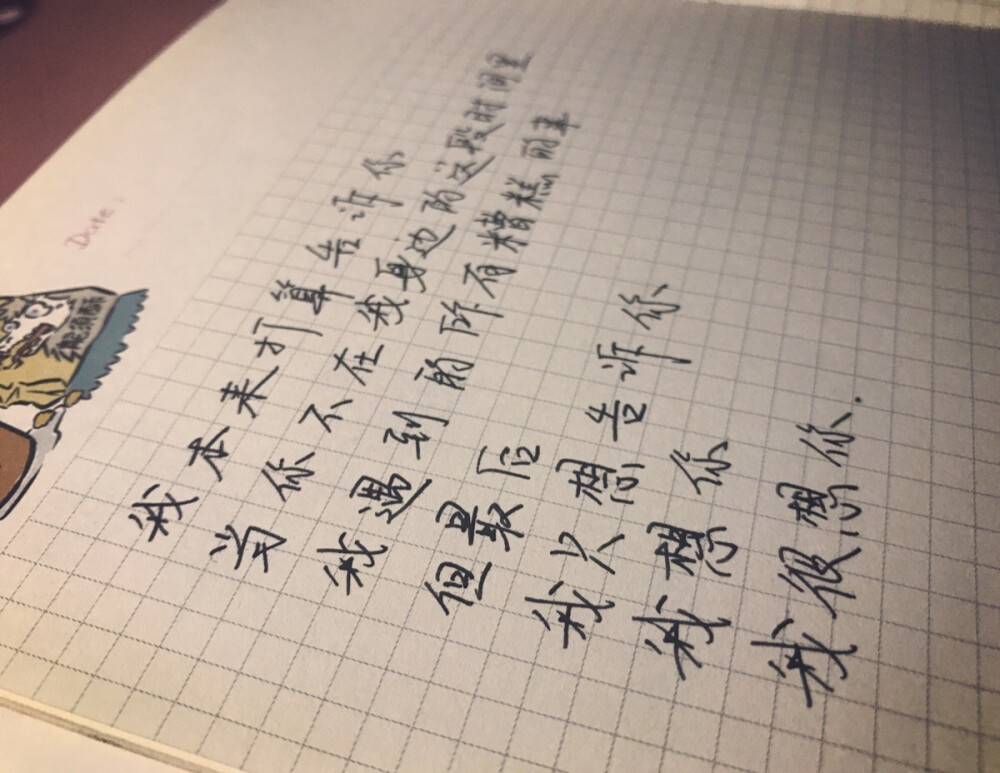 Date:
我本来打算告诉你
当你不在我身边的这段时间里
我遇到的所有糟糕的事
但最后
我只想告诉你
我想你
我很想你.